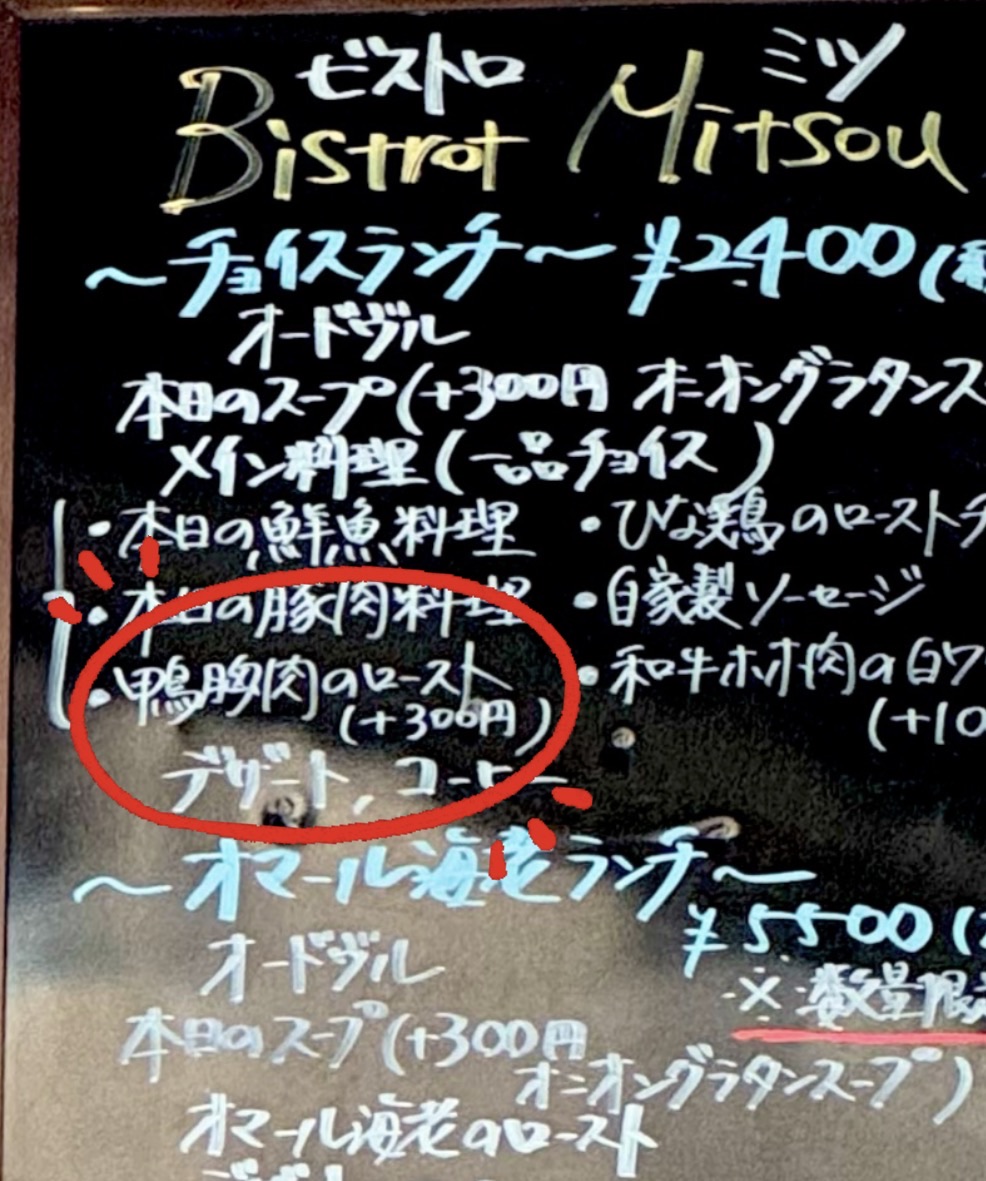 ビストロ ミツ
Bistrot Mitsou
～チョイスランチ～ ¥2400(
オードヴル
本日のスープ(+300円 オニオングラタンス
メイン料理(一品チョイス)
・本日の鮮魚料理 ・ひな鶏のローストチ
・本日の豚肉料理 ・自家製ソーセージ
・鴨胸肉のロースト ・和牛ホホ肉の白ワ
(+300円) (+10
デザート、コーヒー
～オマール海老ランチ～
¥5500(
オードヴル ※数量限
本日のスープ(+300円
オニオングラタンスープ)
オマール海老のロースト